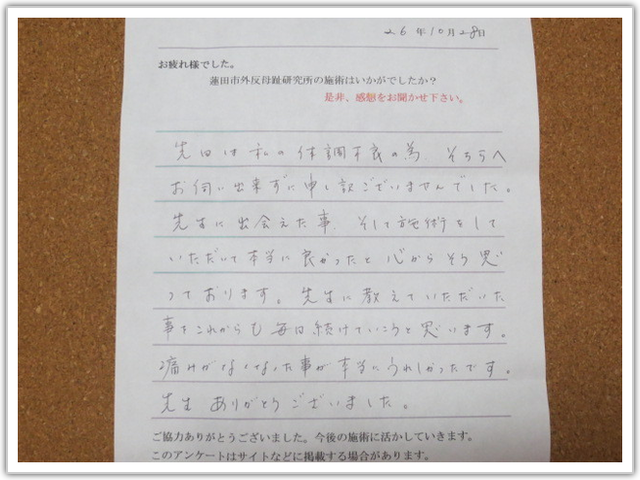 26年10月28日
お疲れ様でした。
蓮田市外反母趾研究所の施術はいかがでしたか?
是非、感想をお聞かせ下さい。
先日は私の体調不良の為、そちらへ
お伺い出来ずに申し訳ございませんでした。
先生に出会えた事、そして施術をして
いただいて本当に良かったと心からそう思
っております。先生に教えていただいた
事をこれからも毎日続けていこうと思います。
痛みがなくなった事が本当にうれしかったです。
先生ありがとうございました。
ご協力ありがとうございました。今後の施術に活かしていきます。
このアンケートはサイトなどに掲載する場合があります。